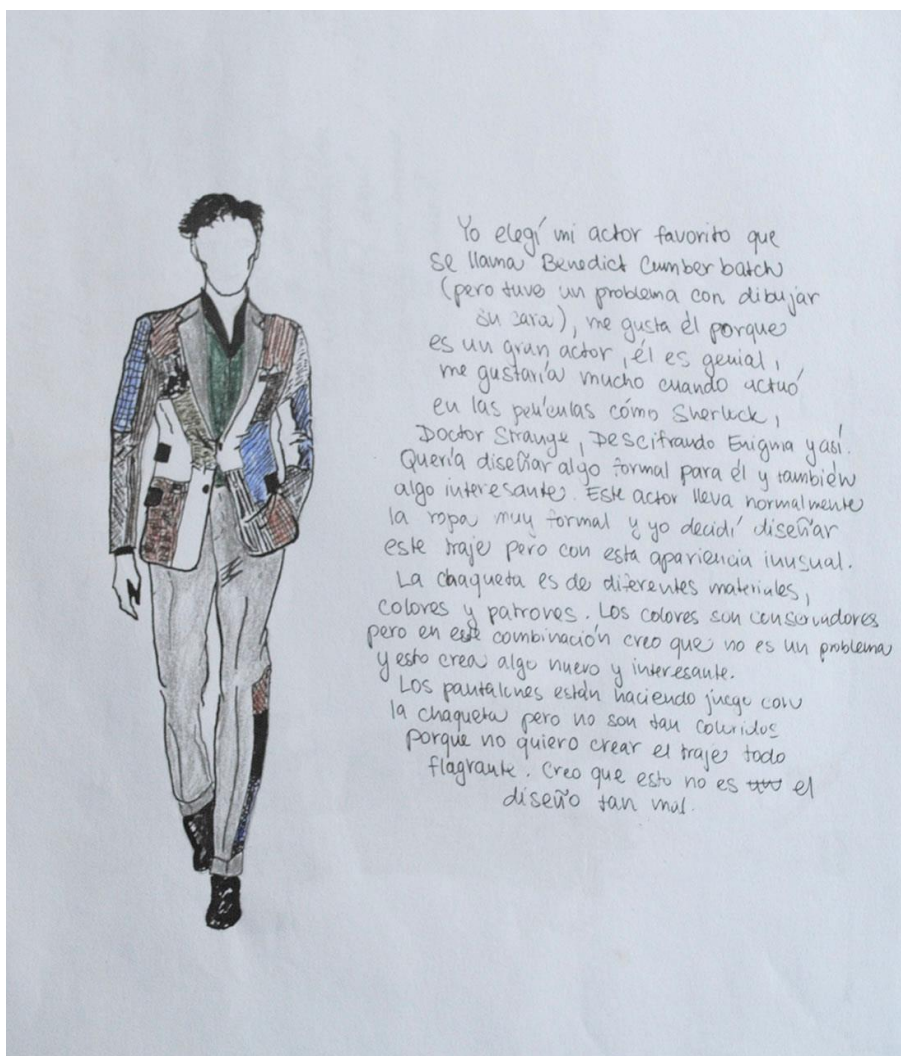 Yo elegí mi actor favorito que
se llama Benedict Cumberbatch
(pero tuve un problema con dibujar
su cara), me gusta él porque
es un gran actor, él es genial,
me gustaría mucho cuando actuó
en las películas cómo Sherlock,
Doctor Strange, Descifrando Enigma y así.
Quería diseñar algo formal para él y también
algo interesante. Este actor lleva normalmente
la ropa muy formal y yo decidí diseñar
este traje pero con esta apariencia inusual.
La chaqueta es de diferentes materiales,
colores y patrones. Los colores son conservadores
pero en este combinación creo que no es un problema
y esto crea algo nuevo y interesante.
Los pantalones están haciendo juego con
la chaqueta pero no son tan coloridos
porque no quiero crear el traje todo
flagrante. Creo que esto no es un el
diseño tan mal.